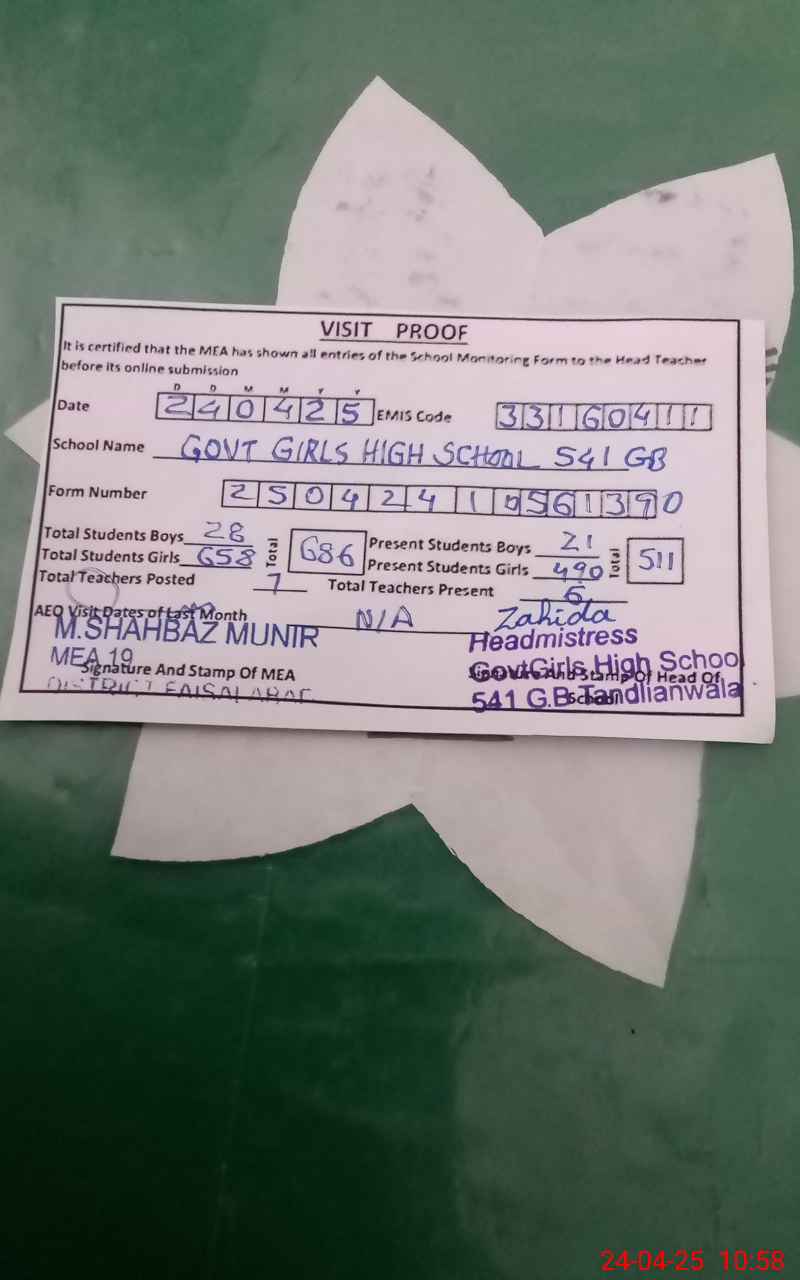 VISIT PROOF
It is certified that the MEA has shown all entries of the School Monitoring Form to the Head Teacher
before its online submission
D D M M Y Y
Date 240425 EMIS Code 33160411
School Name GOVT GIRLS HIGH SCHOOL 541 GB
Form Number 25042410561390
Total Students Boys 28 Total 686 Present Students Boys 21 Total 511
Total Students Girls 658 Present Students Girls 490
Total Teachers Posted 7 Total Teachers Present 6
AEO Visit Dates of Last Month N/A Zahida
M.SHAHBAZ MUNIR Headmistress
MEA 19 GovtGirls High School
Signature And Stamp Of MEA Signature And Stamp Of Head Of School
DISTRICT FAISALABAD 541 G.B Tandlianwala
24-04-25 10:58